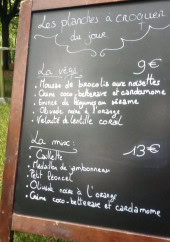 Les planches à croquer
du jour
La végé : 9€
. Mousse de brocolis aux noisettes
. Crème coco-betterave et cardamome
. Houmous de légumes au sésame
. Olivade noire à l'orange
. Velouté de lentille corail
La mixe : 13€
. Caillette
. Médaillon de jambonneau
. Petit
. Olivade noire à l'orange
. Crème coco-betterave et cardamome